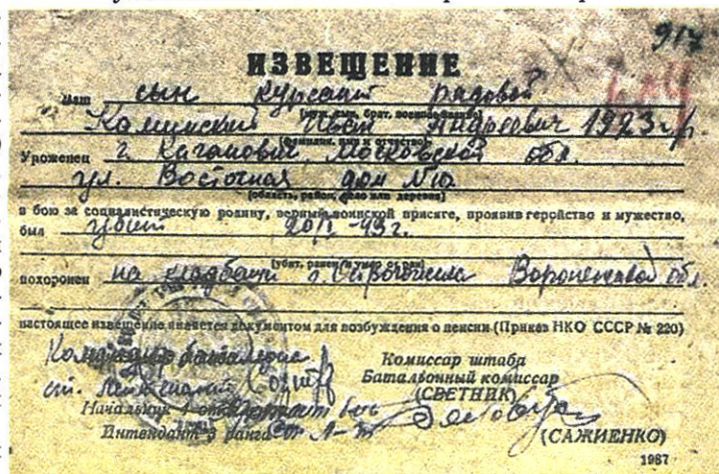 917
ИЗВЕЩЕНИЕ
Ваш сын курсант рядовой
(муж, сын, брат, военное звание)
Каминский Иван Андреевич 1923 г/р.
(фамилия, имя и отчество)
Уроженец г. Каганович Московской обл.
ул. Восточная дом №10
(область, район, село или деревня)
в бою за социалистическую родину, верный воинской присяге, проявив геройство и мужество,
был убит 20/I-43 г.
(убит, ранен и умер от ран)
похоронен на кладбищи г. Острогожска Воронежской обл.
настоящее извещение является документом для возбуждения о пенсии (Приказ НКО СССР № 220)
Командир батальона
ст. лейтенант
Комиссар штаба
Батальонный комиссар
(СВЕТНИК)
Начальник 4
Интендант 3 ранга
(САЖИЕНКО)
1987